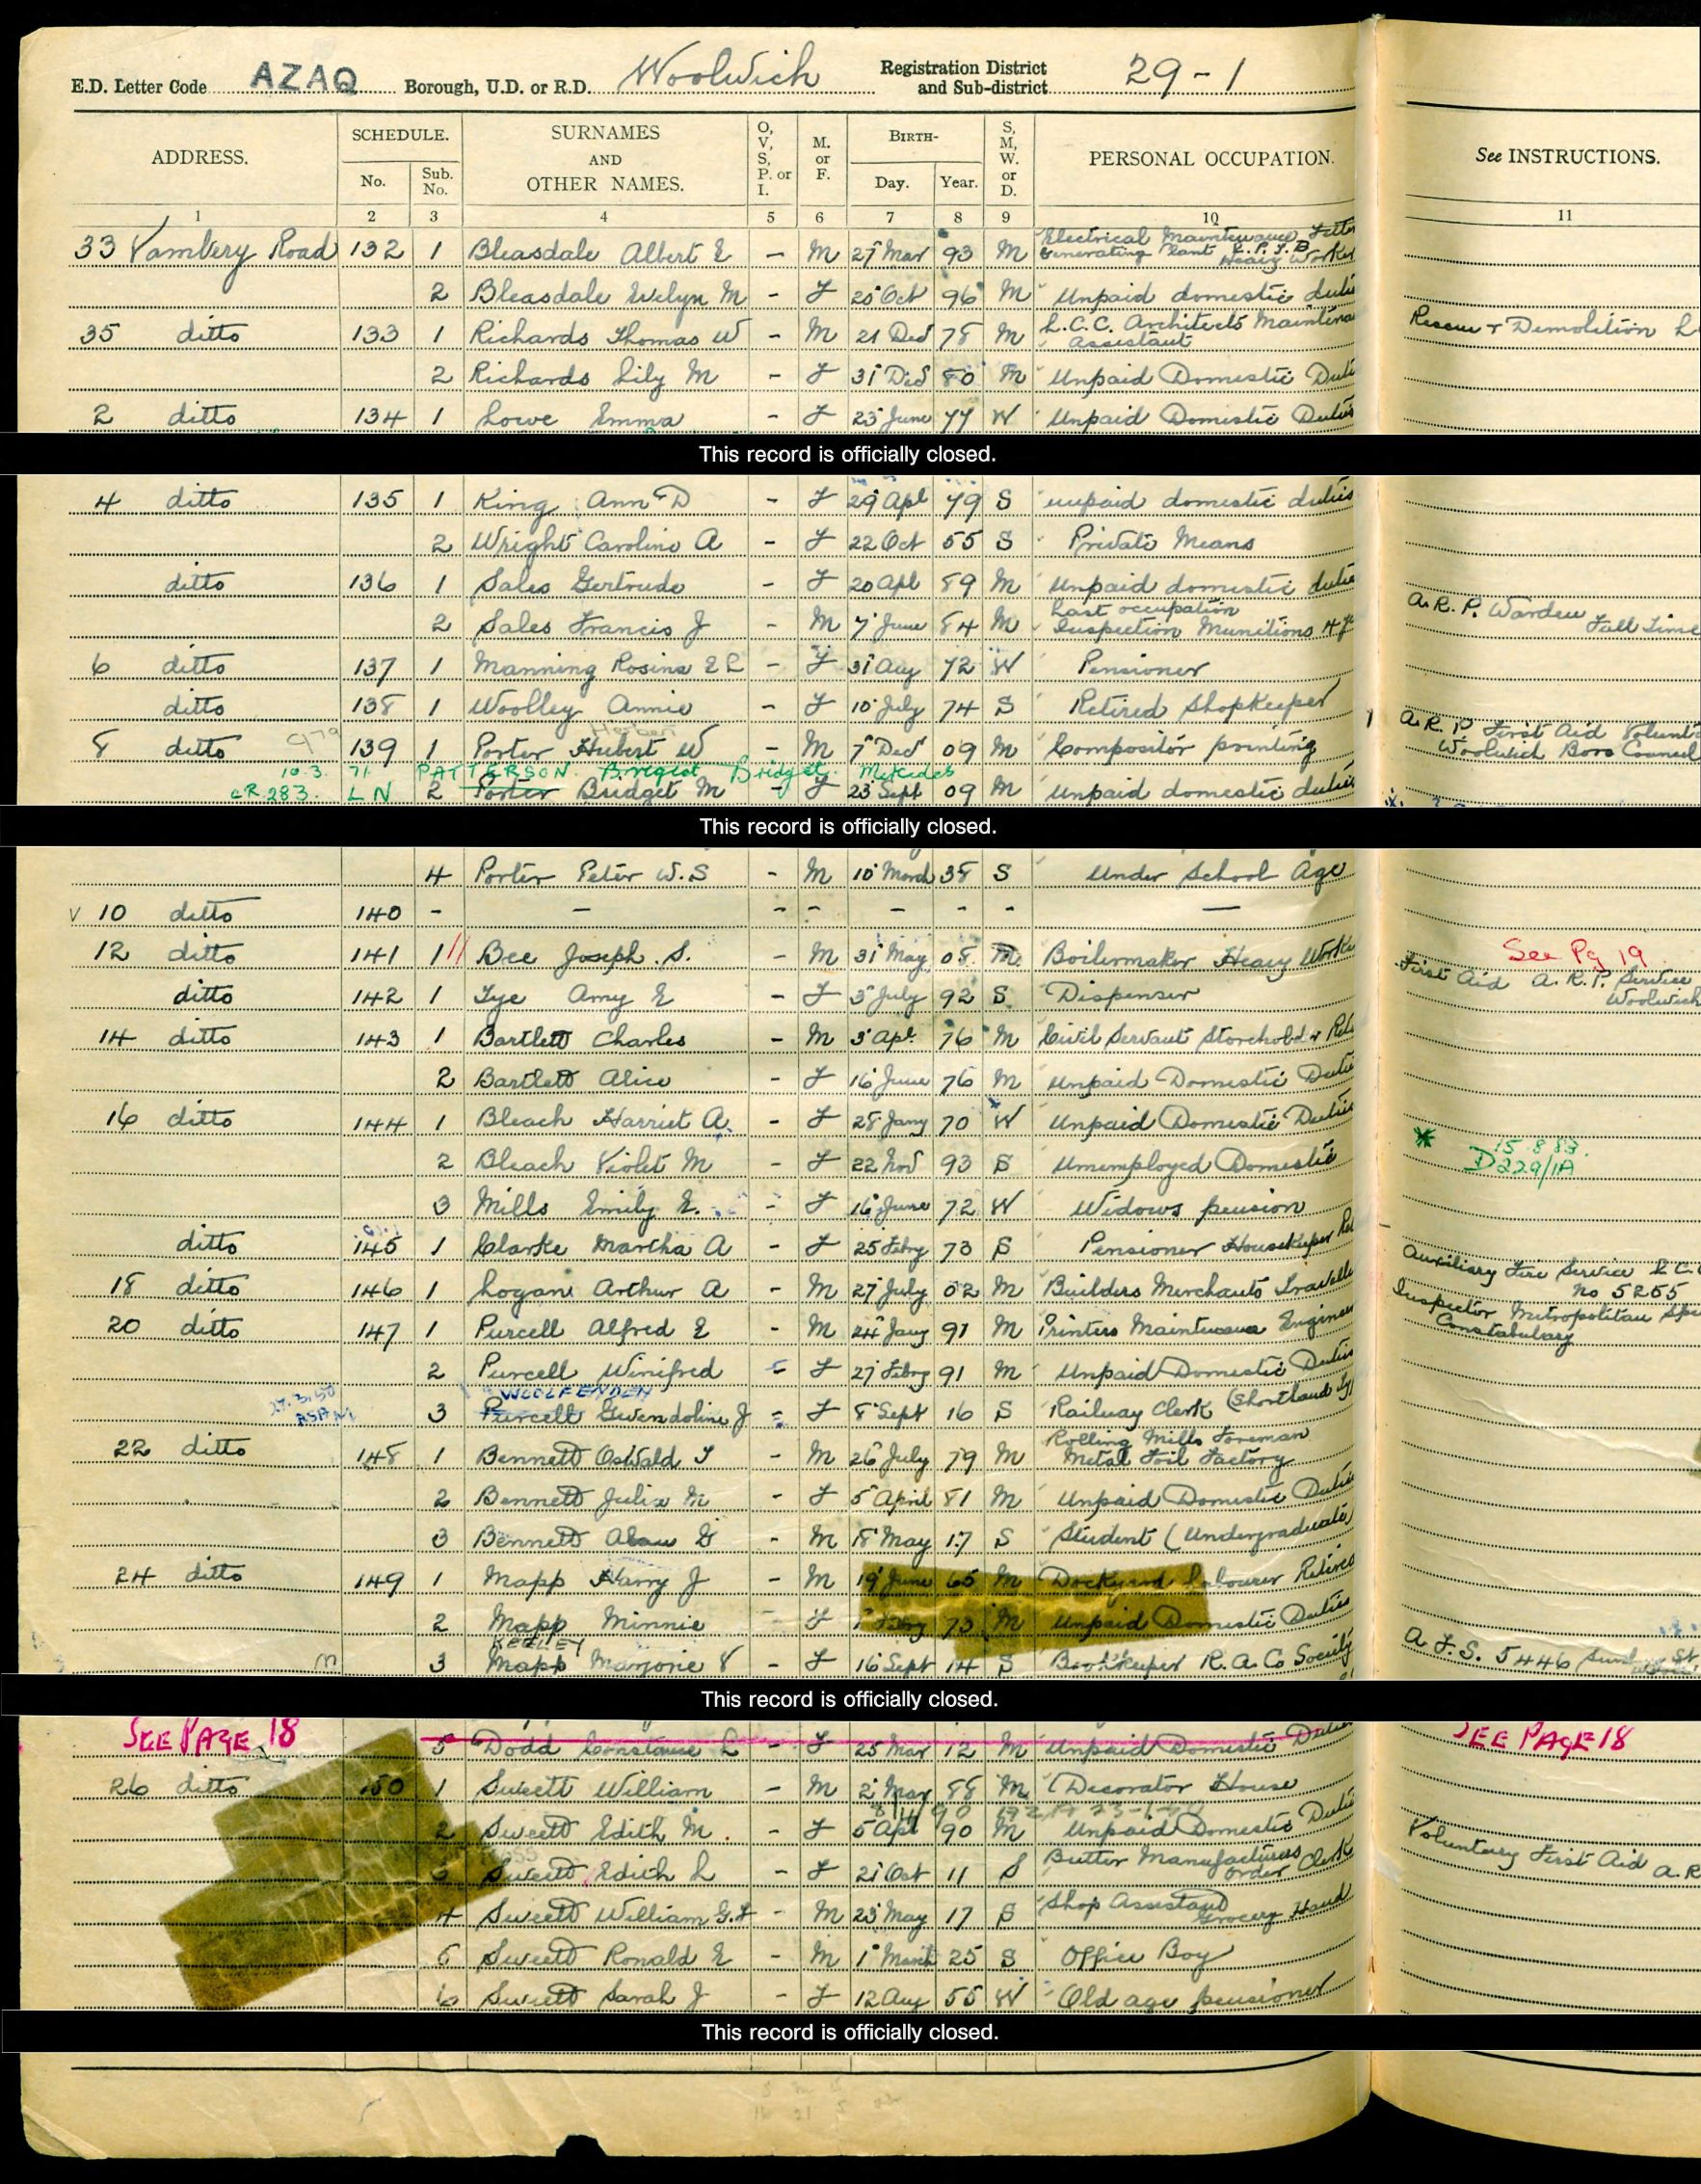 E.D. Letter Code AZAQ Borough, U.D. or R.D. Woolwich Registration District and Sub-district 29-1
ADDRESS. SCHEDULE. No. Sub. No. SURNAMES AND OTHER NAMES. O, V, S, P. or I. M. or F. BIRTH- Day. Year. S, M, W. or D. PERSONAL OCCUPATION. See INSTRUCTIONS.
1 2 3 4 5 6 7 8 9 10 11
33 Vambery Road 132 1 Bleasdale Albert E - M 27 Mar 93 M Electrical Maintenance Fitter Generating Plant L.P.T.B Heavy Worker
2 Bleasdale Evelyn M - F 20 Oct 96 M Unpaid domestic dutie
35 ditto 133 1 Richards Thomas W - M 21 Dec 78 M L.C.C. Architects Maintena Assistant Rescue & Demolition L
2 Richards Lily M - F 31 Dec 80 M Unpaid Domestic Duti
2 ditto 134 1 Lowe Emma - F 23 June 77 W Unpaid Domestic Duties
This record is officially closed.
4 ditto 135 1 King Ann D - F 29 Apl 79 S unpaid domestic duties
2 Wright Caroline A - F 22 Oct 55 S Private Means
ditto 136 1 Sales Gertrude - F 20 Apl 89 M Unpaid domestic dutie
2 Sales Francis J - M 7 June 84 M Last occupation Inspection Munitions A.R.P. Warden Full Time
6 ditto 137 1 Manning Rosina E L - F 31 Aug 72 W Pensioner
ditto 138 1 Woolley Annie - F 10 July 74 S Retired Shopkeeper
8 ditto 139 1 Porter Hubert W - M 7 Dec 09 M Compositor printing A.R.P First Aid Volunt Woolwich Boro Council
10.3. 71 PATTERSON Bridget Mercedes
CR.283. LN 2 Porter Bridget M - F 23 Sept 09 M Unpaid domestic duties
This record is officially closed.
4 Porter Peter W.S - M 10 March 38 S Under School Age
V 10 ditto 140 - - - - - - - -
12 ditto 141 1 Bee Joseph. S. - M 31 May 08 M Boilermaker Heavy Worke See Pg 19
ditto 142 1 Tye Amy E - F 3 July 92 S Dispenser First Aid A.R.P. Service Woolwich
14 ditto 143 1 Bartlett Charles - M 3 Apl 76 M Civil Servant Storeholder Reti
2 Bartlett Alice - F 16 June 76 M Unpaid Domestic Dutie
16 ditto 144 1 Bleach Harriet A. - F 28 Jany 70 W Unpaid Domestic Duties
2 Bleach Violet M - F 22 Nov 93 S Unemployed Domestic 15.8.83. D229/1A
3 Mills Emily E. - F 16 June 72 W Widows pension
ditto 145 1 Clarke Martha A - F 25 Febry 73 S Pensioner Housekeeper Ret
18 ditto 146 1 Logan Arthur A - M 27 July 02 M Builders Merchants Travelle Auxiliary Fire Service L.C.C No 5255
20 ditto 147 1 Purcell Alfred E - M 24 Jany 91 M Printers Maintenance Engineer Inspector Metropolitan Spe Constabulary
2 Purcell Winifred - F 27 Febry 91 M Unpaid Domestic Duties
WOOLFENDEN
3 Purcell Gwendoline J - F 8 Sept 16 S Railway Clerk (Shorthand Ty
22 ditto 148 1 Bennett Oswald T - M 26 July 79 M Rolling Mills Foreman Metal Foil Factory
2 Bennett Julia M - F 5 April 81 M Unpaid Domestic Dutie
3 Bennett Alan G - M 18 May 17 S Student (Undergraduate)
24 ditto 149 1 Mapp Harry J - M 19 June 65 M Dockyard Labourer Retired
2 Mapp Minnie - F 1 Febry 73 M Unpaid Domestic Duties
KEELEY
m 3 Mapp Marjorie V - F 16 Sept 14 S Bookkeeper R.A. Co Society A.F.S. 5446
This record is officially closed.
SEE PAGE 18 5 Dodd Constance L - F 25 Mar 12 M Unpaid Domestic Duties SEE PAGE 18
26 ditto 150 1 Swett William - M 2 May 88 M Decorator House
2 Swett Edith M. - F 5 Apl 90 M Unpaid Domestic Dutie
3 Swett Edith L - F 21 Oct 11 S Butter Manufacturers Order Clerk Voluntary First Aid A.R
4 Swett William G.F - M 23 May 17 S Shop Assistant Grocery Hand
5 Swett Ronald E - M 1 March 25 S Office Boy
6 Swett Sarah J - F 12 Aug 55 W Old age pensioner
This record is officially closed.